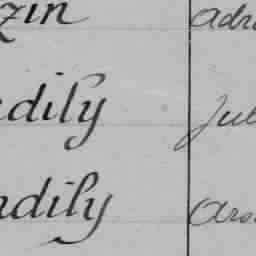 zin Adri
dily Jul
ndily Ars